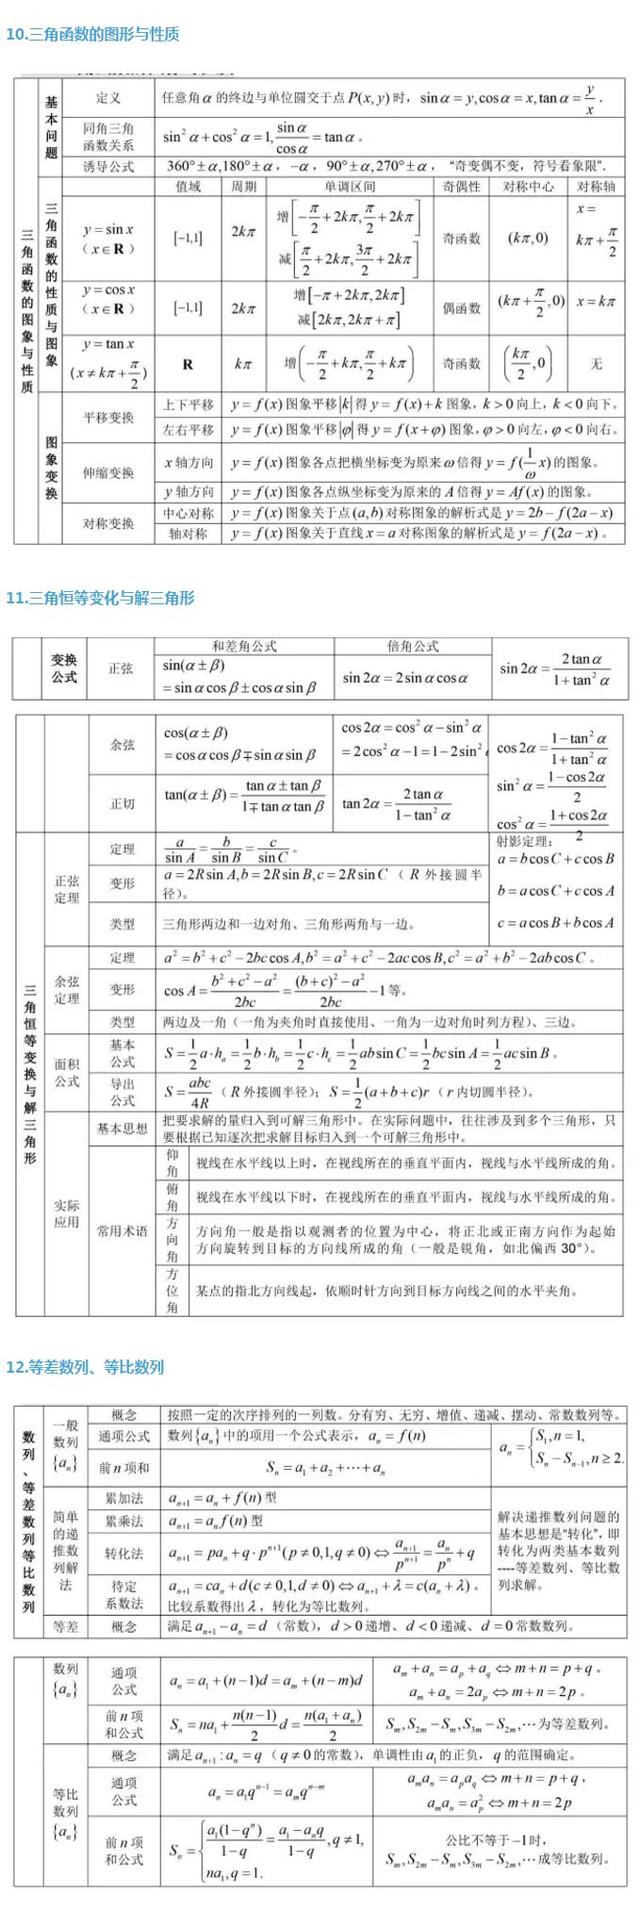 10.三角函数的图形与性质
三角函数的图象与性质
基本问题
定义
任意角α的终边与单位圆交于点P(x, y)时，sinα = y,cosα = x,tanα = y/x .
同角三角函数关系
sin²α+cos²α=1, sinα/cosα = tanα。
诱导公式
360°±α,180°±α，−α，90°±α,270°±α，“奇变偶不变，符号看象限”.
三角函数的性质与图象
值域 周期 单调区间 奇偶性 对称中心 对称轴
y = sin x（x∈R）
[−1,1]
2kπ
增[−π/2+2kπ,π/2+2kπ]
减[π/2+2kπ,3π/2+2kπ]
奇函数
(kπ,0)
x = kπ+π/2
y = cos x（x∈R）
[−1,1]
2kπ
增[−π+2kπ,2kπ]
减[2kπ,2kπ+π]
偶函数
(kπ+π/2,0)
x = kπ
y = tan x (x≠kπ+π/2)
R
kπ
增(−π/2+kπ,π/2+kπ)
奇函数
(kπ/2,0)
无
图象变换
平移变换
上下平移 y = f(x)图象平移|k|得y = f(x)+k图象，k>0向上，k<0向下。
左右平移 y = f(x)图象平移|φ|得y = f(x+φ)图象，φ>0向左，φ<0向右。
伸缩变换
x轴方向 y = f(x)图象各点把横坐标变为原来ω倍得y = f(1/ω x)的图象。
y轴方向 y = f(x)图象各点纵坐标变为原来的A倍得y = Af(x)的图象。
对称变换
中心对称 y = f(x)图象关于点(a,b)对称图象的解析式是y = 2b−f(2a−x)
轴对称 y = f(x)图象关于直线x = a对称图象的解析式是y = f(2a−x)。
11.三角恒等变化与解三角形
变换公式
正弦
和差角公式
sin(α±β)
= sinαcosβ±cosαsinβ
倍角公式
sin2α = 2sinαcosα
sin2α = 2tanα/(1+tan²α)
三角恒等变换与解三角形
余弦
cos(α±β)
= cosαcosβ∓sinαsinβ
cos2α = cos²α−sin²α
= 2cos²α−1=1−2sin²
cos2α = (1−tan²α)/(1+tan²α)
sin²α = (1−cos2α)/2
cos²α = (1+cos2α)/2
正切
tan(α±β) = (tanα±tanβ)/(1∓tanαtanβ)
tan2α = 2tanα/(1−tan²α)
正弦定理
定理
a/sin A = b/sin B = c/sin C。
变形
a = 2Rsin A,b = 2Rsin B,c = 2Rsin C（R外接圆半
径）。
类型
三角形两边和一边对角、三角形两角与一边。
射影定理：
a = bcosC+ccosB
b = acosC+ccosA
c = acosB+bcosA
余弦定理
定理
a² = b²+c²−2bccos A,b² = a²+c²−2accos B,c² = a²+b²−2abcosC。
变形
cos A = (b²+c²−a²)/2bc = ((b+c)²−a²)/2bc −1等。
类型
两边及一角（一角为夹角时直接使用、一角为一边对角时列方程）、三边。
面积公式
基本公式
S = 1/2 a·hₐ = 1/2 b·h_b = 1/2 c·h_c = 1/2 absinC = 1/2 bcsin A = 1/2 acsin B。
导出公式
S = abc/4R（R外接圆半径）；S = 1/2(a+b+c)r（r内切圆半径）。
实际应用
基本思想
把要求解的量归入到可解三角形中。在实际问题中，往往涉及到多个三角形，只
要根据已知逐次把求解目标归入到一个可解三角形中。
常用术语
仰角
视线在水平线以上时，在视线所在的垂直平面内，视线与水平线所成的角。
俯角
视线在水平线以下时，在视线所在的垂直平面内，视线与水平线所成的角。
方向角
方向角一般是指以观测者的位置为中心，将正北或正南方向作为起始
方向旋转到目标的方向线所成的角（一般是锐角，如北偏西30°）。
方位角
某点的指北方向线起，依顺时针方向到目标方向线之间的水平夹角。
12.等差数列、等比数列
数列、等差数列等比数列
一般数列{aₙ}
概念
按照一定的次序排列的一列数。分有穷、无穷、增值、递减、摆动、常数数列等。
通项公式
数列{aₙ}中的项用一个公式表示，aₙ = f(n)
前n项和
Sₙ = a₁+a₂+⋯+aₙ
aₙ = {S₁,n=1, Sₙ−Sₙ₋₁,n≥2.
简单的递推数列解法
累加法
aₙ₊₁ = aₙ+f(n)型
累乘法
aₙ₊₁ = aₙf(n)型
转化法
aₙ₊₁ = paₙ+q·pⁿ⁺¹(p≠0,1,q≠0)⇔aₙ₊₁/pⁿ⁺¹ = aₙ/pⁿ+q
待定系数法
aₙ₊₁ = caₙ+d(c≠0,1,d≠0)⇔aₙ₊₁+λ = c(aₙ+λ)。
比较系数得出λ，转化为等比数列。
解决递推数列问题的
基本思想是“转化”，即
转化为两类基本数列
----等差数列、等比数
列求解。
等差
概念
满足aₙ₊₁−aₙ = d（常数），d>0递增、d<0递减、d=0常数数列。
数列{aₙ}
通项公式
aₙ = a₁+(n−1)d = aₘ+(n−m)d
aₘ+aₙ = aₚ+a_q⇔m+n = p+q。
aₘ+aₙ = 2aₚ⇔m+n = 2p。
前n项和公式
Sₙ = na₁+n(n−1)/2 d = n(a₁+aₙ)/2
Sₘ,S₂ₘ−Sₘ,S₃ₘ−S₂ₘ,⋯为等差数列。
等比数列{aₙ}
概念
满足aₙ₊₁:aₙ = q（q≠0的常数），单调性由a₁的正负，q的范围确定。
通项公式
aₙ = a₁qⁿ⁻¹ = aₘqⁿ⁻ᵐ
aₘaₙ = aₚa_q⇔m+n = p+q，
aₘaₙ = aₚ²⇔m+n = 2p
前n项和公式
Sₙ = {a₁(1−qⁿ)/(1−q) = (a₁−aₙq)/(1−q),q≠1, na₁,q=1.
公比不等于−1时，
Sₘ,S₂ₘ−Sₘ,S₃ₘ−S₂ₘ,⋯成等比数列。